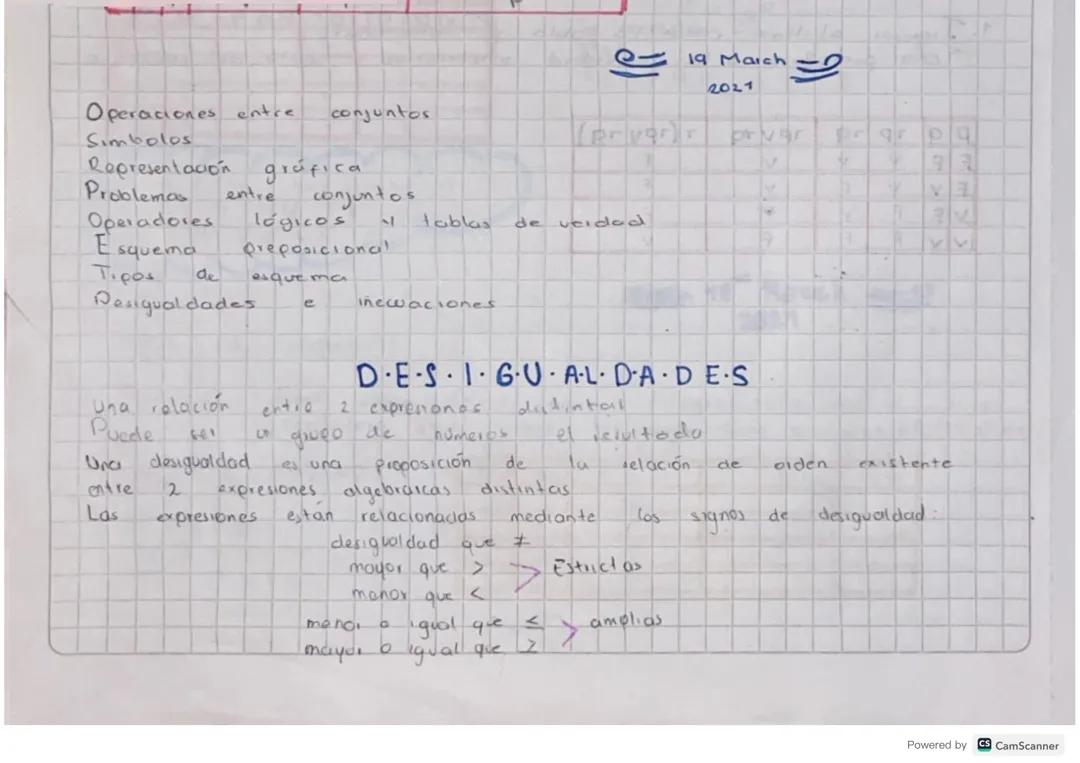 19 March
2021
Operaciones entre conjuntos
Simbolos
Representación gráfica
Problemas entre conjuntos
Operadores lógicos y tablas de verdad
Esquema preposicional
Tipos de esquema
Desigualdades e inecuaciones
D·E·S·I·G·U·A·L·D·A·D E·S
Una relación entre 2 expresiones distintas
Puede ser un grupo de números el resultado
Una desigualdad es una proposición de la relación de orden existente
entre 2 expresiones algebraicas distintas
Las expresiones están relacionadas mediante los signos de desigualdad:
desigualdad que ≠
mayor que > Estrictas
menor que <
menor o igual que ≤ amplias
mayor o igual que ≥
Powered by CS CamScanner